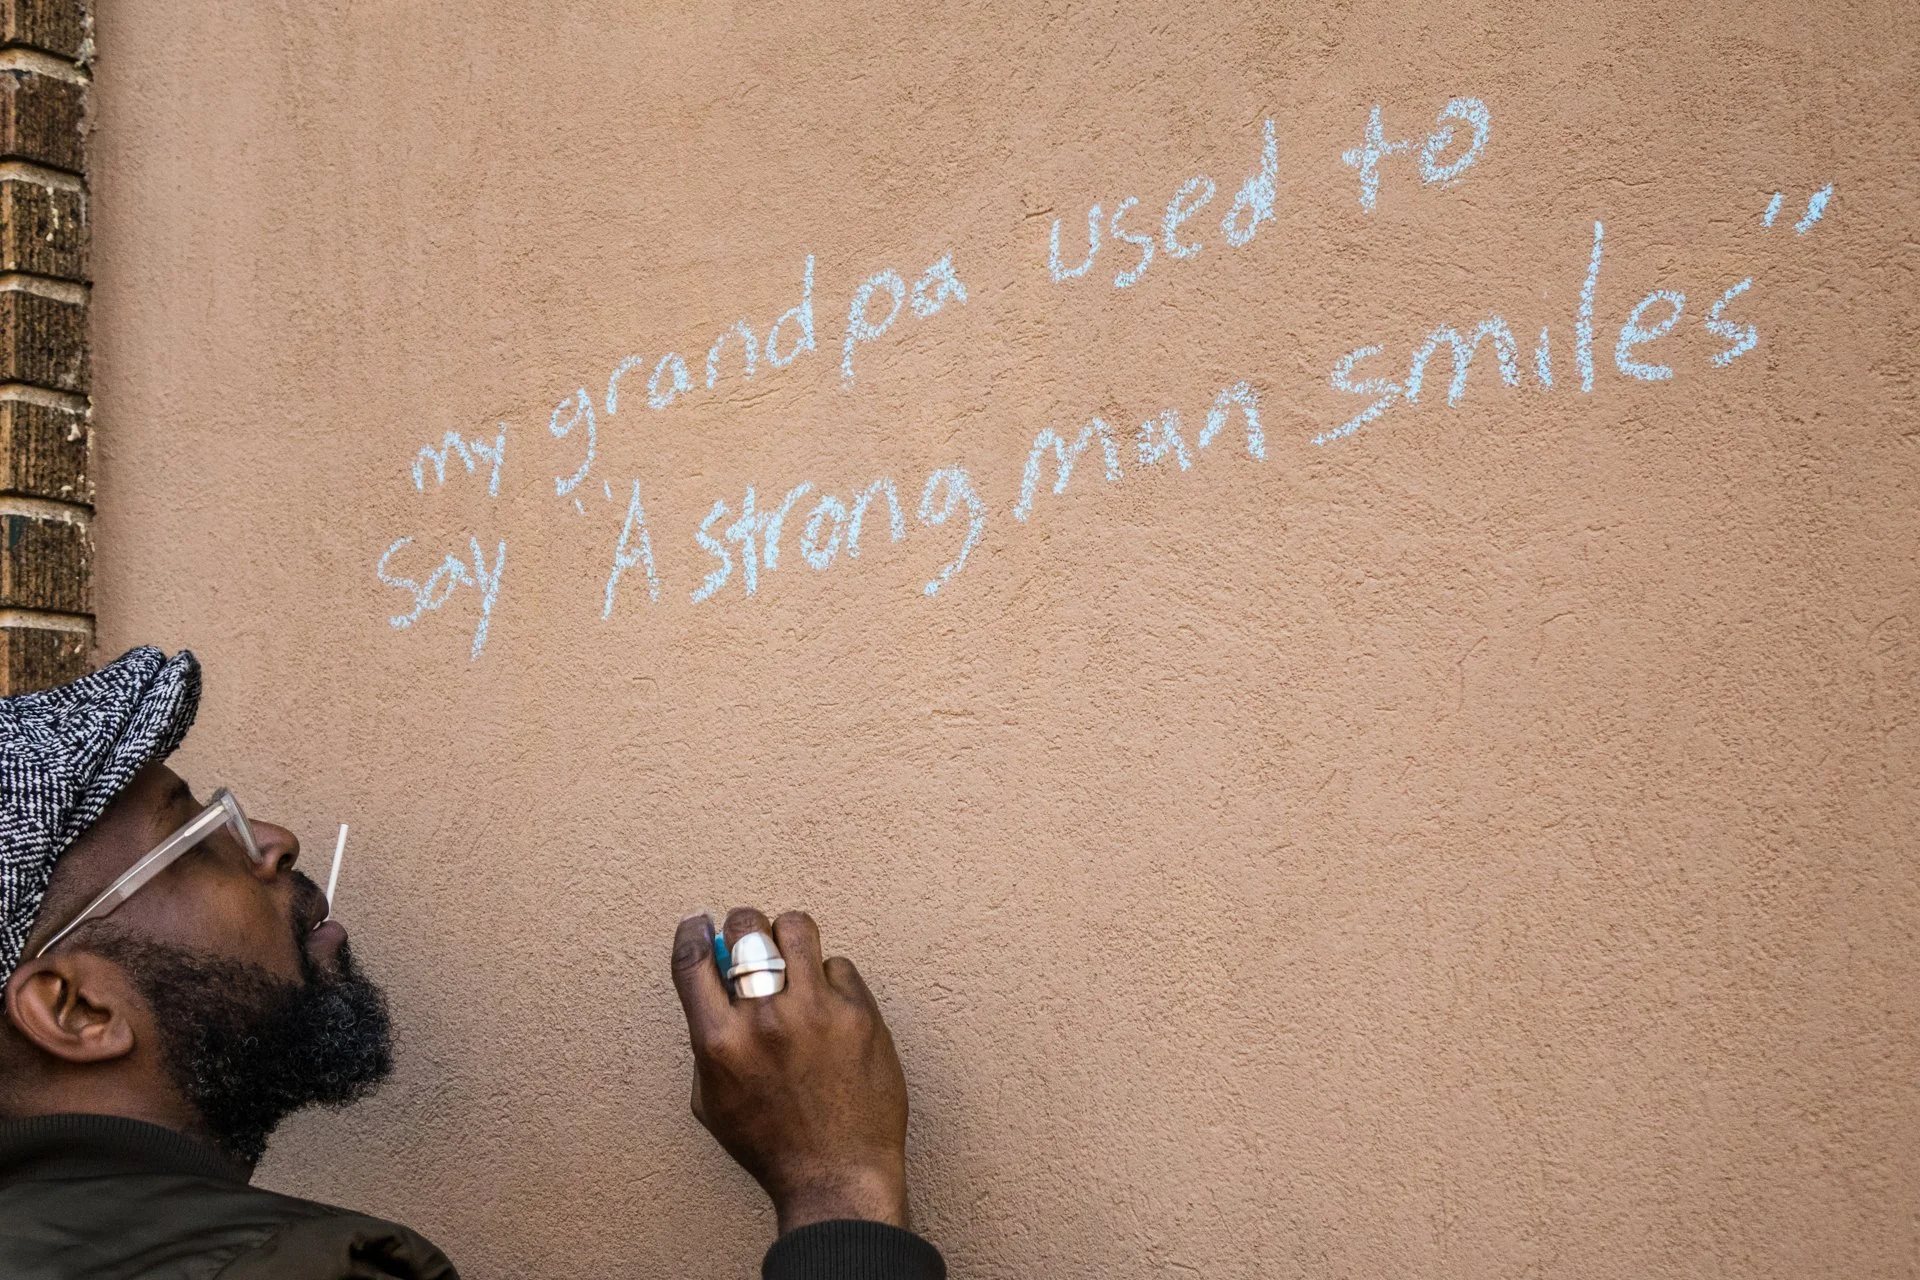 my grandpa used to
Say "A strong man smiles"